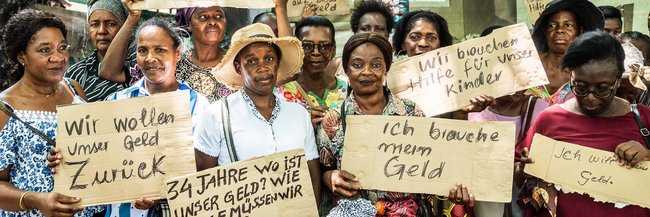 Wir wollen
unser Geld
Zurück
34 JAHRE WO IST
UNSER GELD? WIE
MÜSSEN WIR
Ich brauche
mein
Geld
Wir brauchen
Hilfe für unser
Kinder
Ich
Geld.